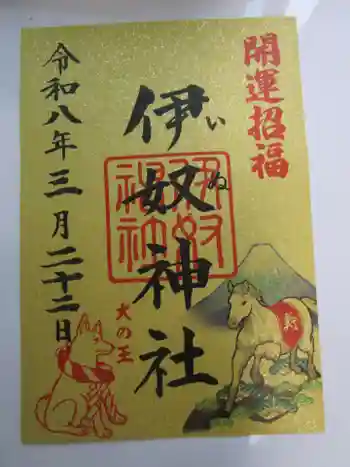 開運招福
伊奴神社
いぬ
令和八年三月二十二日
犬の王
伊奴神社